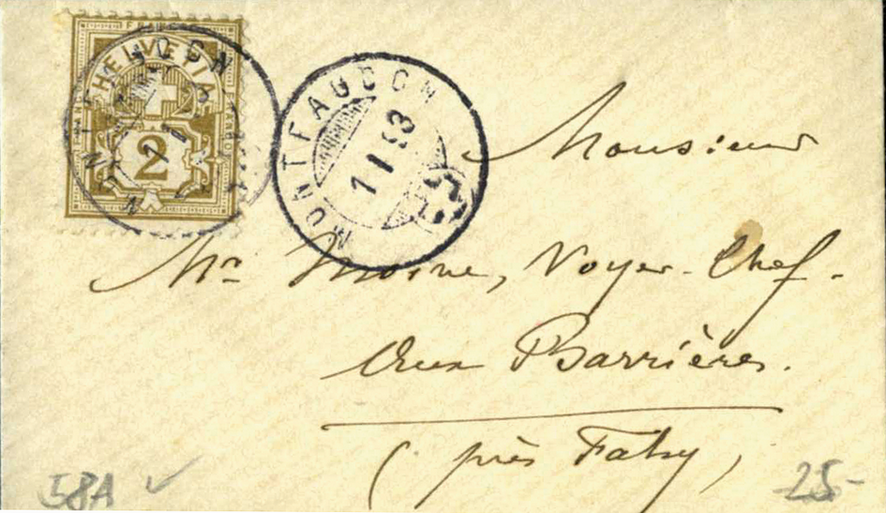 FRANCO
HELVETIA
2
MONTFAUCON
1 1 93
Monsieur
Mr Moine, Voyer-Chef.
Aux Barrières.
(près Fahy)
58A ✓
25-